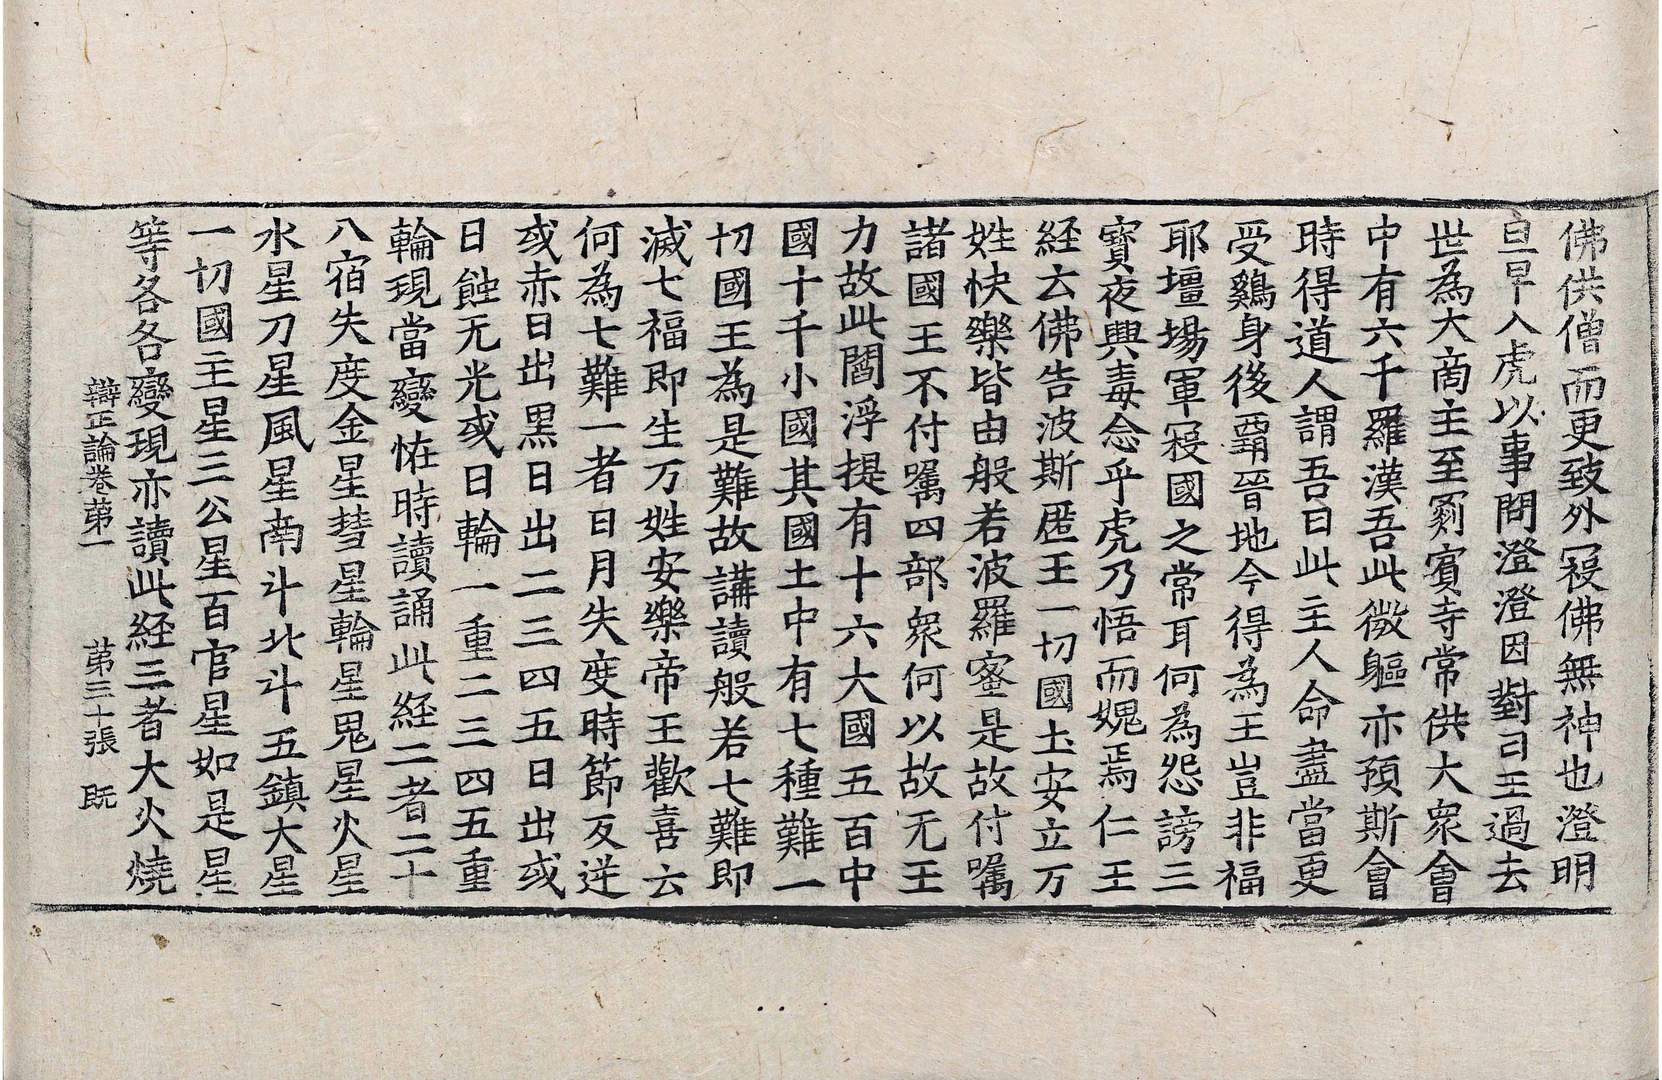 佛供僧而更致外寇佛無神也澄明
旦早入虎以事問澄澄因對曰王過去
世為大商主至罽賓寺常供大衆會
中有六千羅漢吾此微軀亦預斯會
時得道人謂吾曰此主人命盡當更
受鷄身後覇晉地今得為王豈非福
耶壃場軍寇國之常耳何為怨謗三
寶夜興毒念乎虎乃悟而媿焉仁王
経云佛告波斯匿王一切國土安立万
姓快樂皆由般若波羅蜜是故付囑
諸國王不付囑四部衆何以故无王
力故此閻浮提有十六大國五百中
國十千小國其國土中有七種難一
切國王為是難故講讀般若七難即
滅七福即生万姓安樂帝王歡喜云
何為七難一者日月失度時節反逆
或赤日出黒日出二三四五日出或
日蝕无光或日輪一重二三四五重
輪現當變恠時讀誦此経二者二十
八宿失度金星彗星輪星鬼星火星
水星刀星風星南斗北斗五鎮大星
一切國主星三公星百官星如是星
等各各變現亦讀此経三者大火燒
辯正論卷第一 第三十張 旣